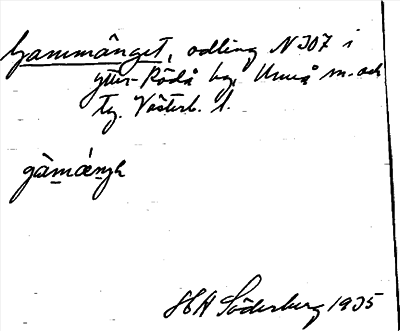 Gammänget, odling NJ07 i
ytter-Rödå by, Umeå m. och
tg. Västerb. l.
gàmǽngh
HA Söderberg 1935